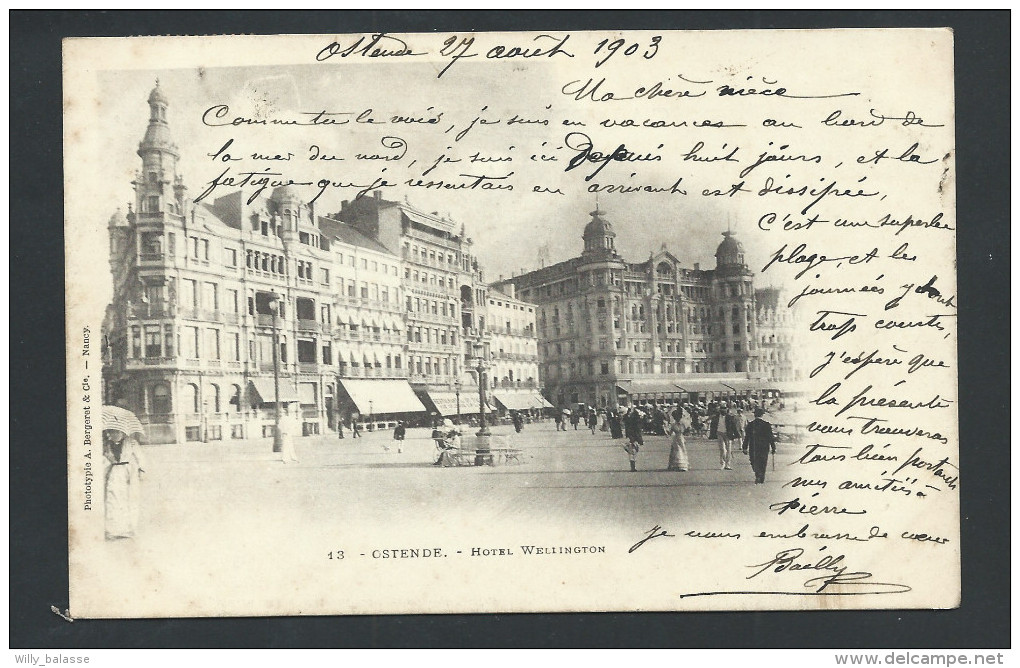 Ostende 27 août 1903
Ma chère nièce
Comme tu le vois, je suis en vacances au bord de
la mer du nord, je suis ici Depuis huit jours, et la
fatigue que je ressentais en arrivant est dissipée,
C'est une superbe
plage, et les
journées y sont
trop courtes,
J'espère que
la présente
vous trouveras
tous bien portants
mes amitiés à
Pierre
Je vous embrasse de cœur
Bailly
13 - OSTENDE. - HOTEL WELLINGTON
Phototypie A. Bergeret & Cie. — Nancy.
Willy_balasse
http://www.delcampe.net